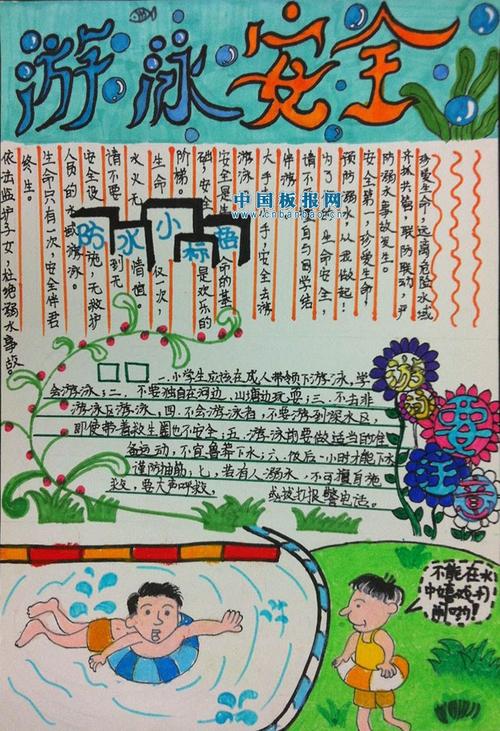 游泳安全
珍爱生命，远离危险水域
齐抓共管，联防联动，严
防溺水事故发生。
安全第一，珍爱生命！
预防溺水，从我做起！
为了 生命安全，
请不 自与同学结
伴游
大手 手，安全去游
游泳
安全是生命的基
础，安全是欢乐的
阶梯。
生命 仅一次，
水火无情
请不要到无
安全设施，无救护
人员的水域游泳。
生命只有一次，安全伴君
终生。
依法监护子女，杜绝溺水事故
防水小标语
中国板报网
www.cnbanbao.cn
一、小学生应该在成人带领下游泳，学
会游泳；二、不要独自在河边、山塘边玩耍；三、不去非
游泳区游泳，四、不会游泳者，不要游到深水区，
即使带着救生圈也不安全；五、游泳前要做适当的准
备运动，不宜鲁莽下水；六、饭后一小时才能下水
谨防抽筋；七、若有人溺水，不可擅自施
救，要大声呼救， 或拨打报警电话。
游泳要注意
不能在水
中嬉戏打
闹哟！